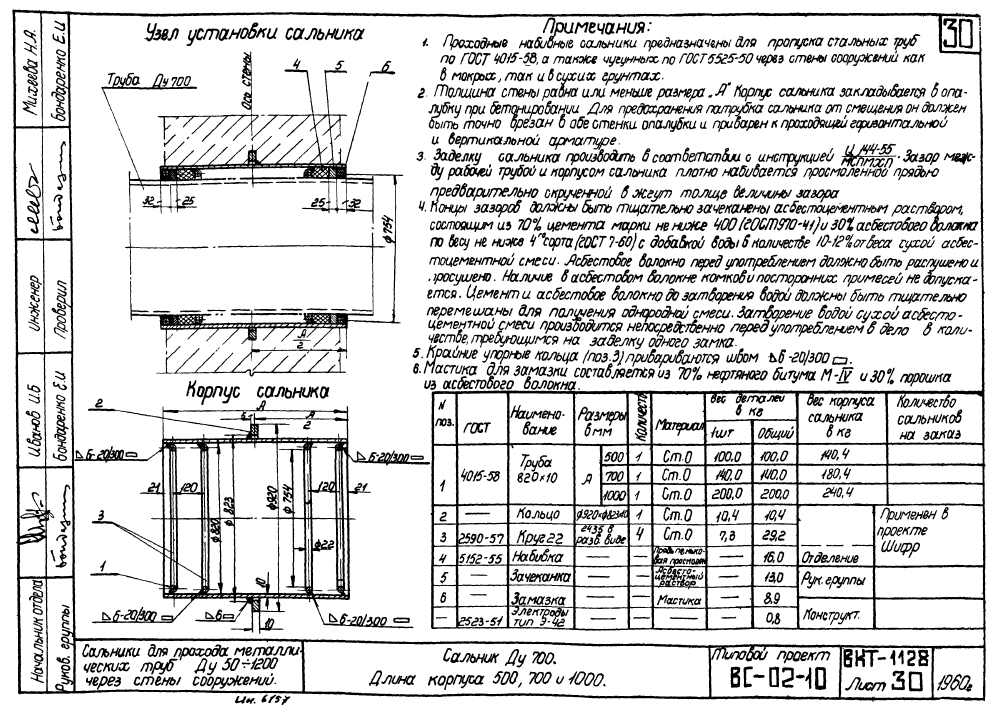 Узел установки сальника
Труба Ду 700
Ось стены
4 5 6
32 25 25 32
ф754
А
2
Корпус сальника
2
А
5 А
2
6-20/300 6-20/300
21 120 120 21
ф820
ф823
ф920
ф754
ф22
3
1
10
6-20/300 6 6-20/300
10
Примечания:
30
1. Проходные набивные сальники предназначены для пропуска стальных труб
по ГОСТ 4015-58, а также чугунных по ГОСТ 5525-50 через стены сооружений как
в мокрых, так и в сухих грунтах.
2. Толщина стены равна или меньше размера "А" Корпус сальника закладывается в опа-
лубку при бетонировании. Для предохранения патрубка сальника от смещения он должен
быть точно врезан в обе стенки опалубки и приварен к проходящей горизонтальной
и вертикальной арматуре.
3. Заделку сальника производить в соответствии с инструкцией И 144-55
МСПМХП. Зазор меж-
ду рабочей трубой и корпусом сальника плотно набивается просмоленной прядью
предварительно скрученной в жгут толще величины зазора
4. Концы зазоров должны быть тщательно зачеканены асбестоцементным раствором,
состоящим из 70% цемента марки не ниже 400 (ГОСТ 970-41) и 30% асбестового волокна
по весу не ниже 4го сорта (ГОСТ 7-60) с добавкой воды в количестве 10-12% от веса сухой асбес-
тоцементной смеси. Асбестовое волокно перед употреблением должно быть распушено и
просушено. Наличие в асбестовом волокне комков и посторонних примесей не допуска-
ется. Цемент и асбестовое волокно до затворения водой должны быть тщательно
перемешаны для получения однородной смеси. Затворение водой сухой асбесто-
цементной смеси производится непосредственно перед употреблением в дело в коли-
честве, требующимся на заделку одного замка.
5. Крайние упорные кольца (поз.3) привариваются швом 6-20/300
6. Мастика для замазки составляется из 70% нефтяного битума М-IV и 30% порошка
из асбестового волокна.
N поз. ГОСТ Наимено-вание Размеры в мм Количест. Материал Вес деталей в кг 1шт Общий Вес корпуса сальника в кг Количество сальников на заказ
1 4015-58 Труба 820×10 А 500 1 Ст.0 100,0 100,0 140,4
700 1 Ст.0 140,0 140,0 180,4
1000 1 Ст.0 200,0 200,0 240,4
2 — Кольцо ф920×ф823×10 1 Ст.0 10,4 10,4 Применен в проекте Шифр
3 2590-57 Круг 22 2435 в разв. виде 4 Ст.0 7,3 29,2
4 5152-55 Набивка — — Прядь пенько-вая просмолен — 16,0 Отделение
5 — Зачеканка — — Асбесто-цементный раствор — 13,0 Рук. группы
6 — Замазка — — Мастика — 8,9
— 2523-51 Электроды тип Э-42 — — — — 0,8 Конструкт.
Сальники для прохода металли-
ческих труб Ду 50÷1200
через стены сооружений.
Сальник Ду 700.
Длина корпуса 500, 700 и 1000.
Типовой проект
ВС-02-10
ВКТ-1128
Лист 30
1960г
Ин. 6757
Начальник отдела Иванов И.Б
Руков. группы Бондаренко Е.И
Инженер Михеева Н.А.
Проверил Бондаренко Е.И